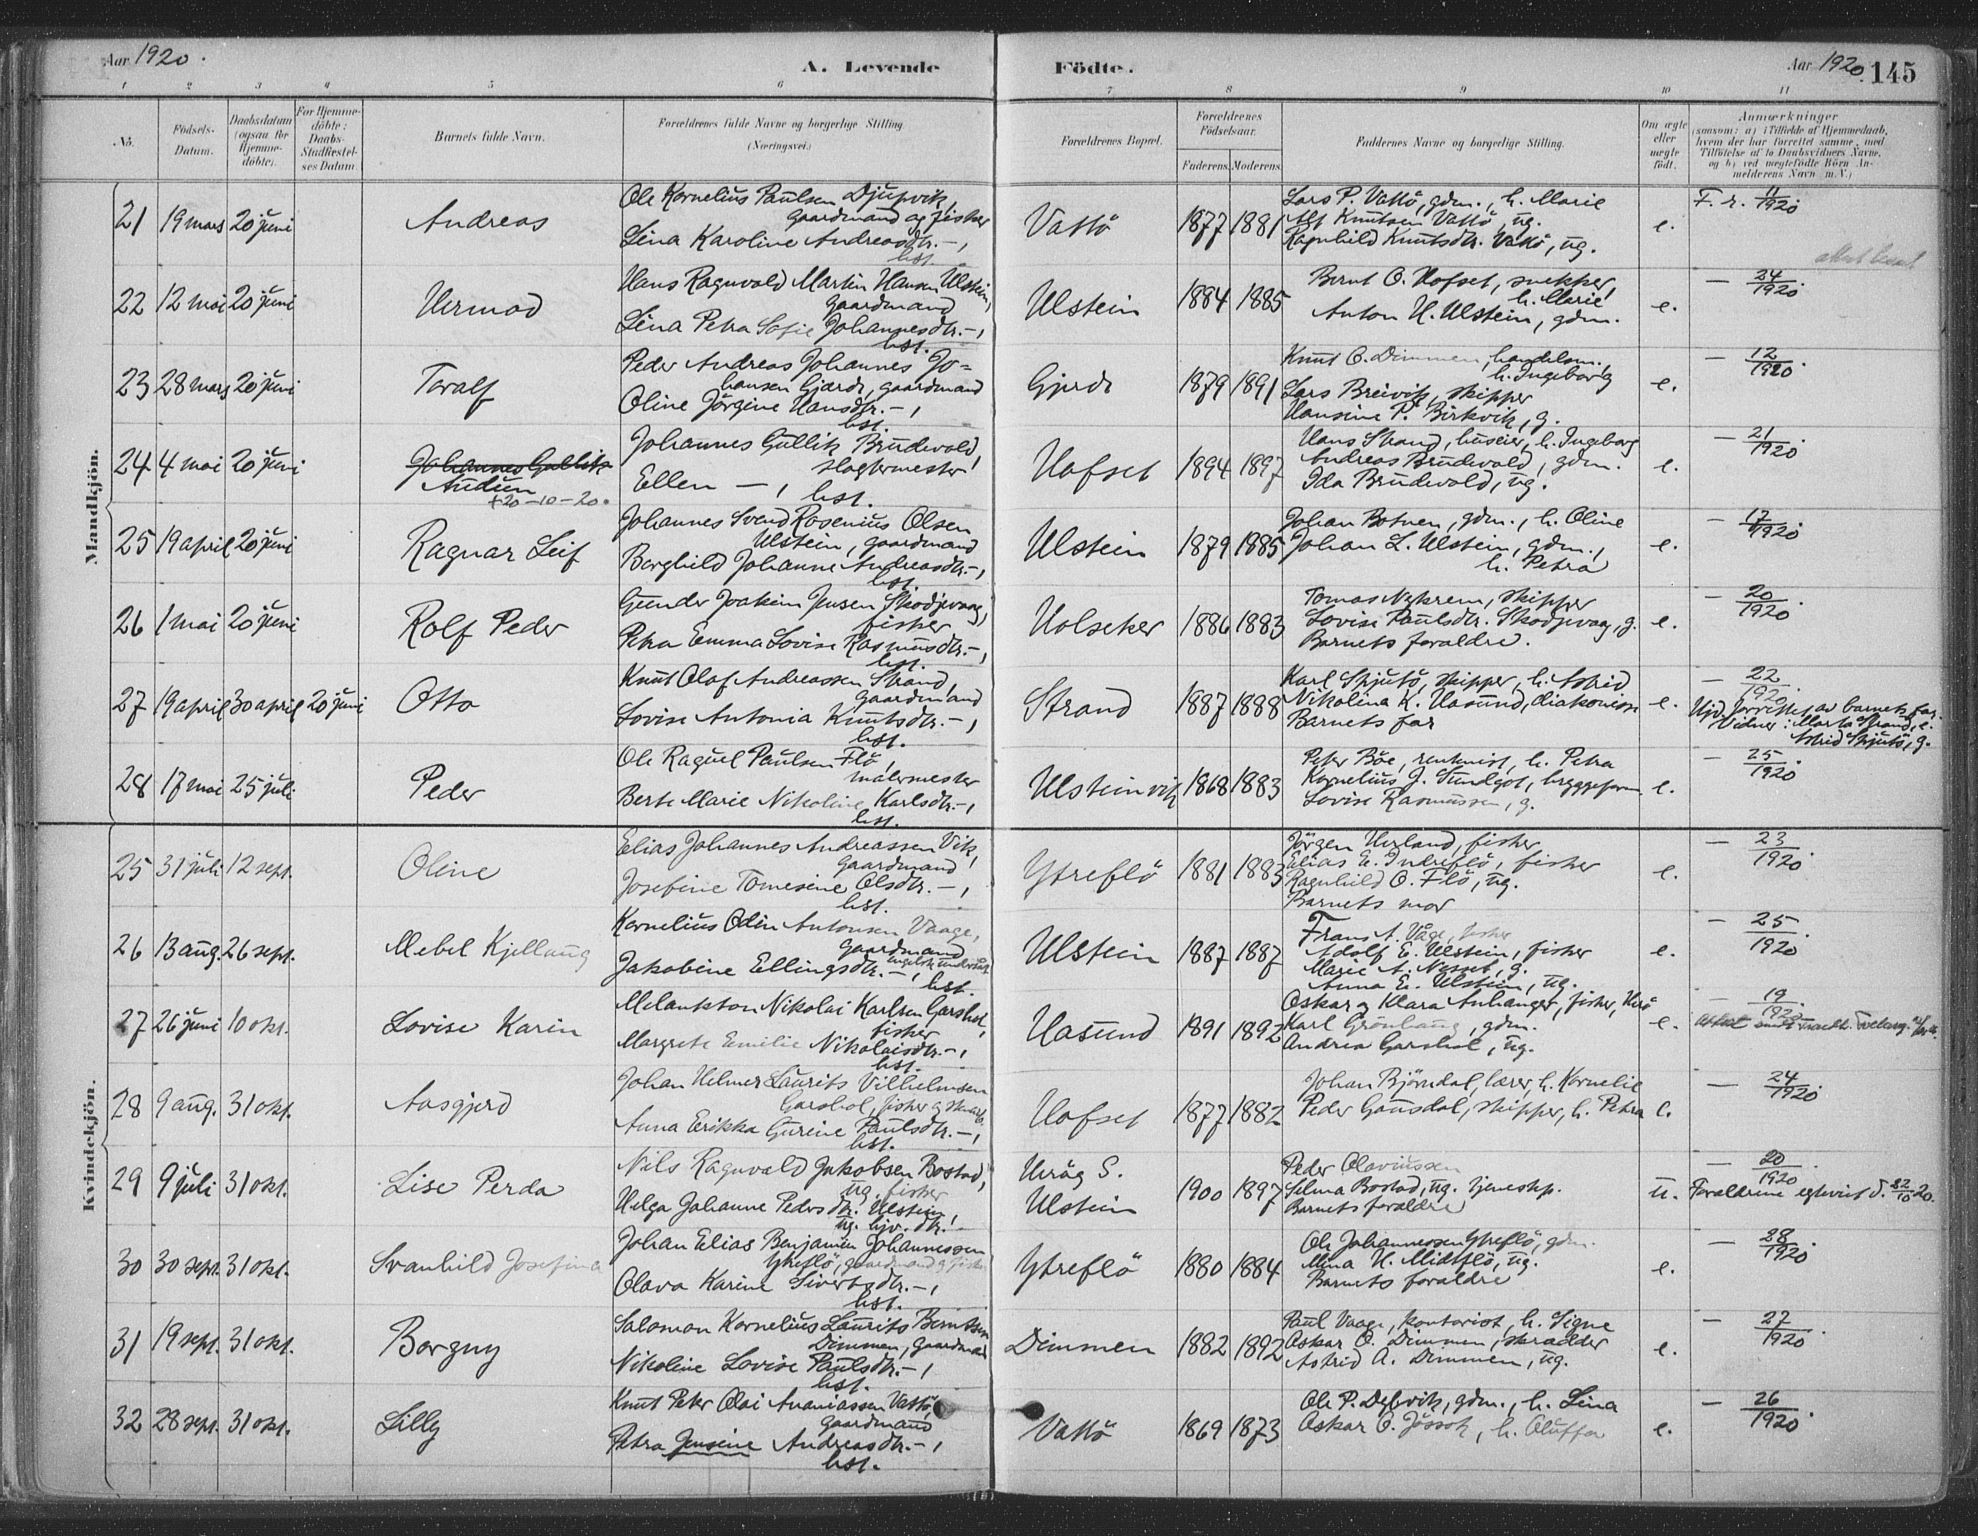 Aar 1920.
A. Levende Födte.
Aar 1920. 145
1 2 3 4 5 6 7 8 9 10 11
No.
Födsels-Datum.
Daabsdatum (ogsaa for Hjemmedöbte).
For Hjemmedöbte: Daabs-Stadfæstelses Datum.
Barnets fulde Navn.
Forældrenes fulde Navne og borgerlige Stilling (Næringsvei.)
Forældrenes Bopæl.
Forældrenes Födselsaar.
Faderens. Moderens.
Faddernes Navne og borgerlige Stilling.
Om ægte eller uægte födt.
Anmærkninger
(saasom: a) i Tilfælde af Hjemmedaab, hvem der har forrettet samme, med Tilföielse af to Daabsvidners Navne, og b) ved uægtefödte Börn Anmelderens Navn m.V.)
Mandkjön.
21 19 mars 20 juni Andreas
Ole Kornelius Paulsen Djupvik,
gaardmand og fisker
Lina Karoline Andreasdtr. –,
hst.
Vattö 1877 1881
Lars P. Vattö, gdm., h. Marie
Alf Knutsen Vattö, ug.
Ragnhild Knutsdtr. Vattö, ug.
e. F. r. 11/1920.
22 12 mai 20 juni Hermod
Hans Ragnvald Martin Hansen Ulstein,
gaardmand
Lina Petra Sofie Johannesdtr. –,
hst.
Ulstein 1884 1885
Bernt O. Hofset, snekker,
h. Marie
Anton H. Ulstein, gdm.
e. – 24/1920.
23 28 mars 20 juni Toralf
Peder Andreas Johannes Jo=
hansen Gjerde, gaardmand
Oline Jörgine Hansdtr. –,
hst.
Gjerde 1879 1891
Knut O. Dimmen, handelsm.,
h. Ingeborg
Lars Breivik, skipper
Hansine P. Birkvik, g.
e. – 12/1920.
24 4 mai 20 juni Johannes Gullik
Audun
+20-10-20.
Johannes Gullik Brudevold,
slagtermester
Ellen –, hst.
Hofset 1894 1897
Hans Strand, huseier, h. Ingeborg
Andreas Brudevold, gdm.
Ida Brudevold, ug.
e. – 21/1920.
25 19 april 20 juni Ragnar Leif
Johannes Svend Rosenius Olsen
Ulstein, gaardmand
Borghild Johanne Andreasdtr. –,
hst.
Ulstein 1879 1885
Johan Botnen, gdm., h. Oline
Johan L. Ulstein, gdm.,
h. Petra
e. – 17/1920.
26 1 mai 20 juni Rolf Peder
Gunder Joakim Jensen Skodjevaag,
fisker
Petra Emma Lovise Rasmusdtr. –,
hst.
Holseker 1886 1883
Tomas Nykrem, skipper
Lovise Paulsdtr. Skodjevaag, g.
Barnets foraldre.
e. – 20/1920.
27 19 april 30 april 20 juni Otto
Knut Olaf Andreassen Strand,
gaardmand
Lovise Antonia Knutsdtr. –,
hst.
Strand 1887 1888
Karl Skjutö, skipper, h. Astrid
Nikolina K. Hasund, diakonisse
Barnets far
e. – 22/1920.
Hjd. forrettet av barnets far.
Vidner: Marta Strand, e.
Astrid Skjutö, g.
28 17 mai 25 juli Peder
Ole Raguel Paulsen Flö,
malermester
Berte Marie Nikoline Karlsdtr. –,
hst.
Ulsteinvik 1868 1883
Peter Böe, rentenist, h. Petra
Kornelius J. Sundgot, bryggeform.
Lovise Rasmussen, g.
e. – 25/1920.
Kvindekjön.
25 31 juli 12 sept. Oline
Elias Johannes Andreassen Vik,
gaardmand
Josefine Tomesine Olsdtr. –,
hst.
Ytreflö 1881 1883
Jörgen Herland, fisker
Elias E. Indreflö, fisker
Ragnhild O. Flö, ug.
Barnets mor
e. – 23/1920.
26 13 aug. 26 sept. Mebel Kjellaug
Kornelius Odin Antonsen Vaage,
gaardmand
engelsk undersaat
Jakobine Ellingsdtr. –,
hst.
Ulstein 1887 1887
Frans A. Våge, fisker
Adolf E. Ulstein, fisker
Marie A. Nesset, g.
Anna E. Ulstein, ug.
e. – 25/1920.
27 26 juni 10 okt. Lovise Karin
Melankton Nikolai Karlsen Garshol,
fisker
Margrete Emilie Nikolaisdtr. –,
hst.
Hasund 1891 1892
Oskar og Klara Anhanger, fisker, Herö
Karl Grönhaug, gdm.
Andrea Garshol, ug.
e. – 19/1920.
28 9 aug. 31 okt. Aasgjerd
Johan Helmer Laurits Vilhelmsen
Garshol, fisker og skomak.
Anna Erikka Gurine Paulsdtr. –,
hst.
Hofset 1877 1882
Johan Björndal, lærer, h. Kornelie
Peder Gausdal, skipper, h. Petra
e. – 24/1920.
29 9 juli 31 okt. Lise Perda
Nils Ragnvald Jakobsen Bostad,
ug. fisker
Helga Johanne Pedersdtr. Ulstein,
ug. hjv. dtr.
Haag S.
Ulstein 1900 1897
Peder Olaviussen
Selma Bostad, ug. tjenestep.
Barnets foraldre
u. – 20/1920.
Foraldrene egteviet d. 22/10 20.
30 30 sept. 31 okt. Svanhild Josefina
Johan Elias Benjamin Johannessen
Ytreflö, gaardmand og fisker
Olava Karine Sivertsdtr. –,
hst.
Ytreflö 1880 1884
Ole Johannessen Ytreflö, gdm.
Mina H. Midtflö, ug.
Barnets foraldre
e. – 28/1920.
31 19 sept. 31 okt. Borgny
Salomon Kornelius Laurits Berntsen
Dimmen, gaardmand
Nikoline Lovise Paulsdtr. –,
hst.
Dimmen 1882 1892
Paul Vaage, kontorist, h. Signe
Oskar O. Dimmen, skrædder
Astrid A. Dimmen, ug.
e. – 27/1920.
32 28 sept. 31 okt. Lilly
Knut Peter Olai Ananiassen Vattö,
gaardmand
Petra Jensine Andreasdtr. –,
hst.
Vattö 1869 1873
Ole P. Debvik, gdm., h. Lina
Oskar O. Jössok, h. Oluffa
e. – 26/1920.